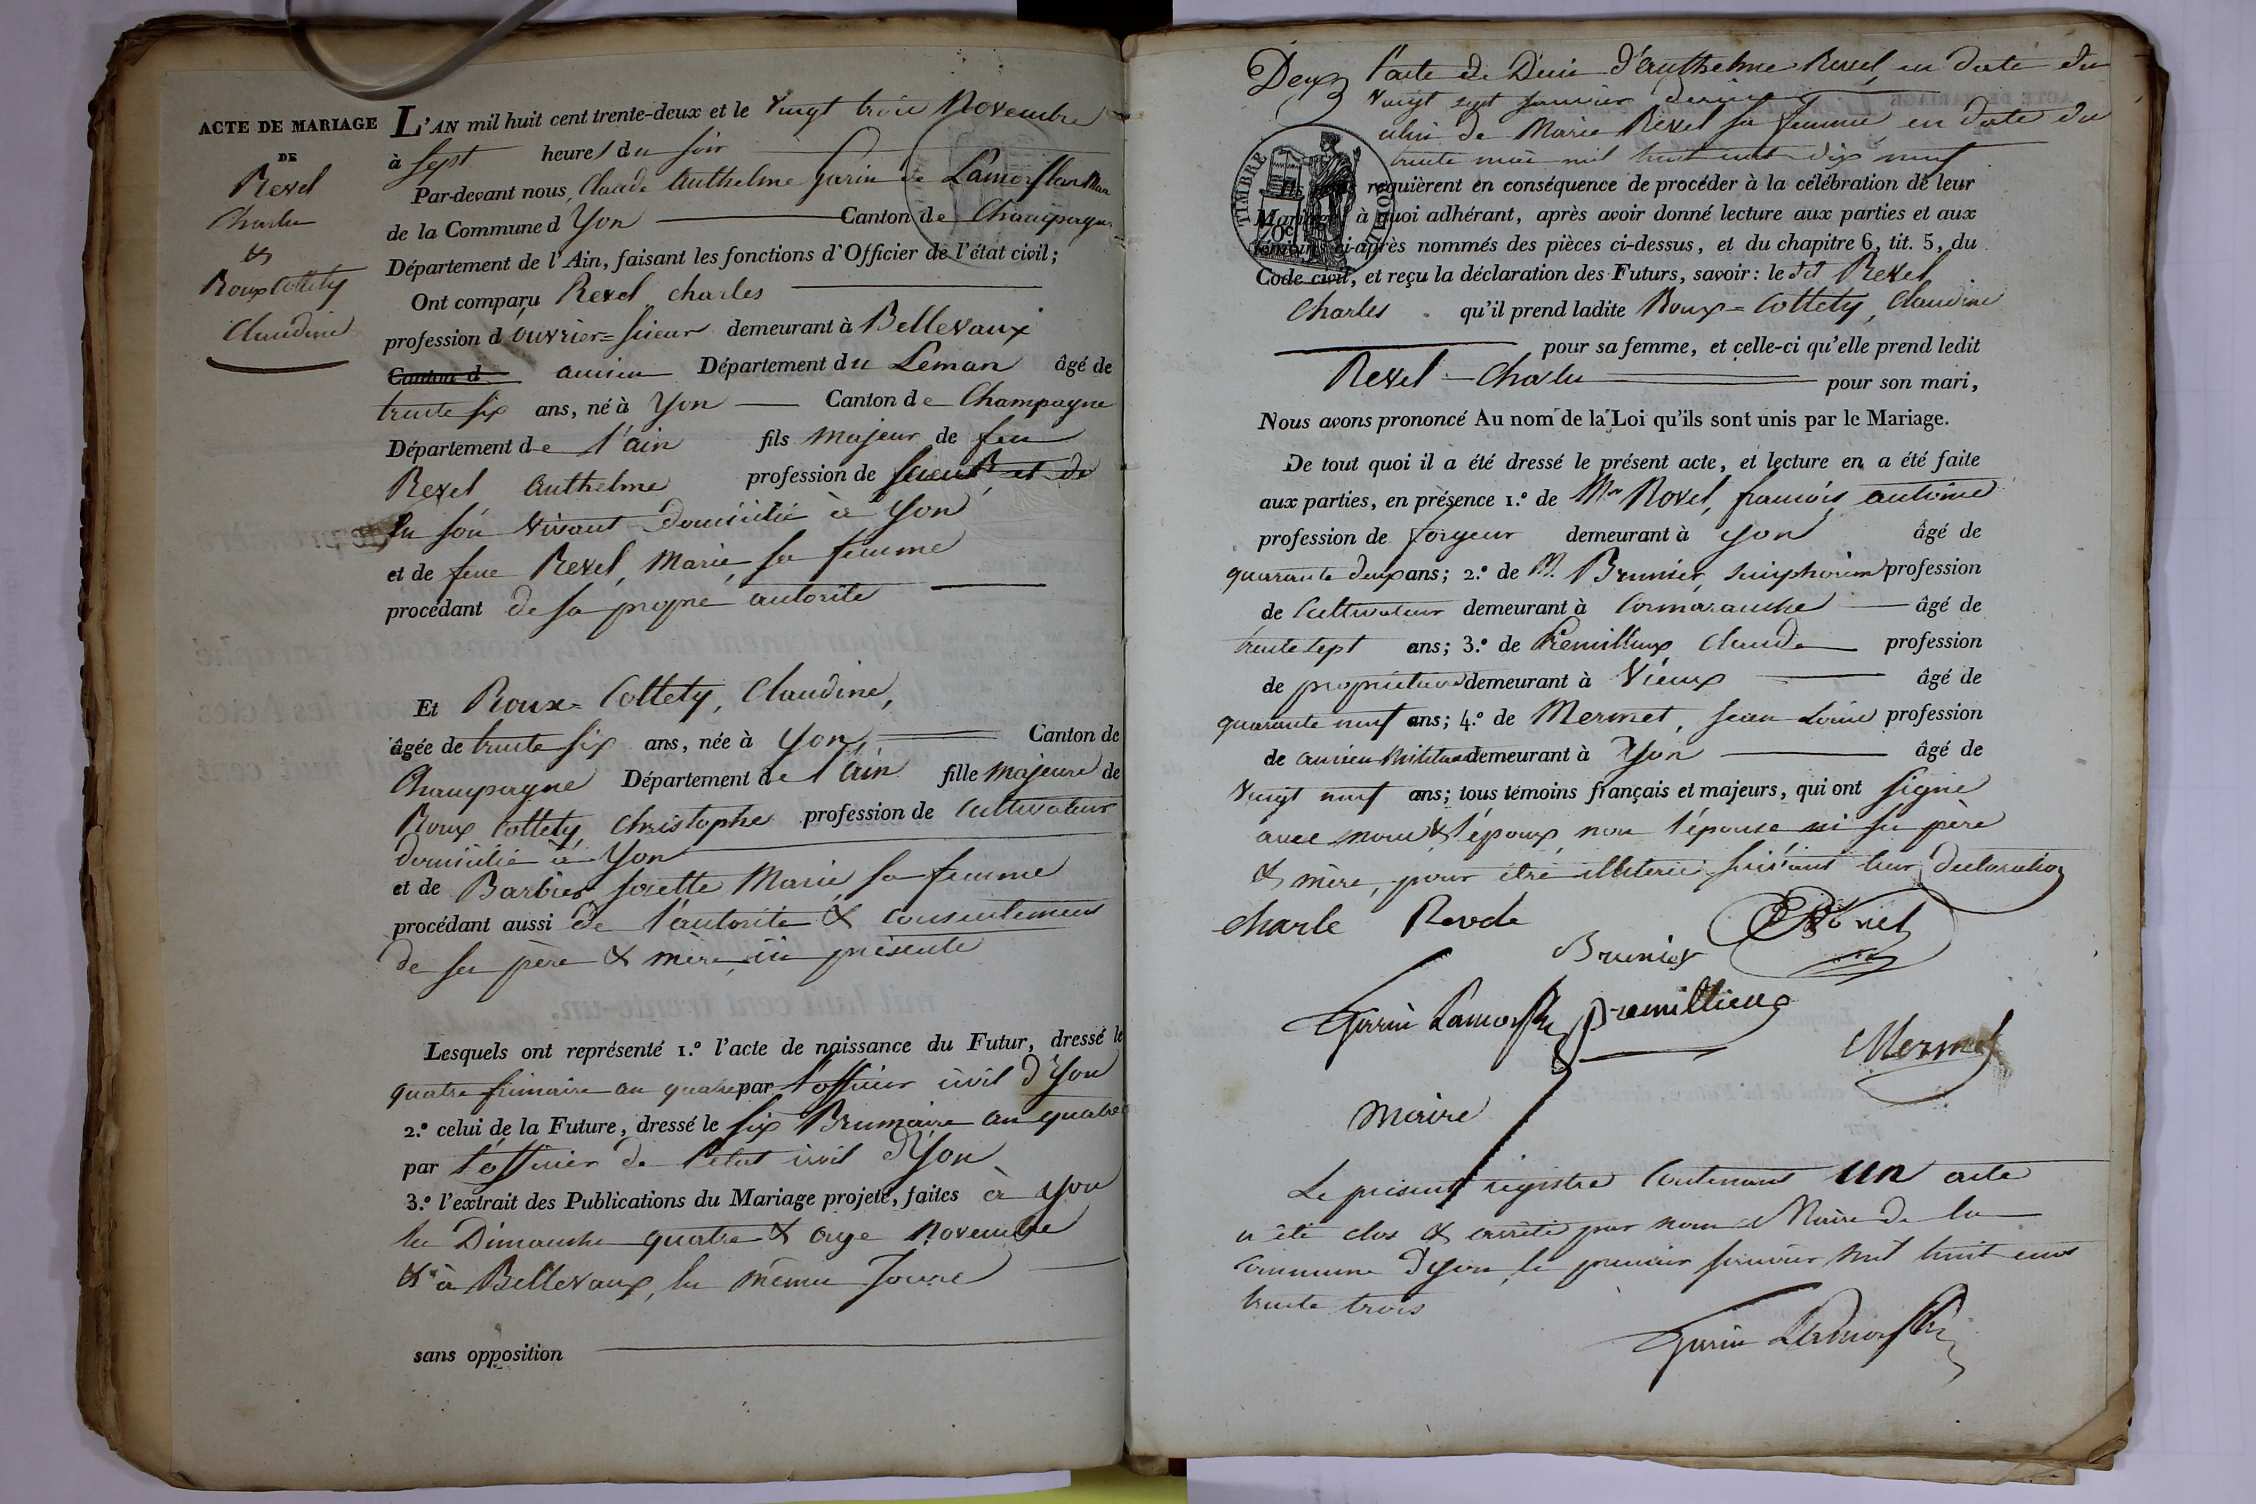 ACTE DE MARIAGE
DE
Revel
Charles
&
Roux Collety
Claudine
L'AN mil huit cent trente-deux et le vingt trois Novembre
à sept heures du soir
Par-devant nous, Claude Anthelme Garin de Lamorflan Maire
de la Commune d'Yon Canton de Champagne
Département de l'Ain, faisant les fonctions d'Officier de l'état civil;
Ont comparu Revel charles
profession d'ouvrier=scieur demeurant à Bellevaux
Canton d ancien Département du Leman âgé de
trente six ans, né à Yon Canton de Champagne
Département de l'ain fils majeur de feu
Revel Anthelme profession de
en son vivant domicilié à Yon
et de feue Revel, Marie, sa femme
procédant de sa propre autorité
Et Roux=Collety, Claudine,
âgée de trente six ans, née à Yon Canton de
Champagne Département de l'ain fille majeure de
Roux Collety Christophe profession de cultivateur
domicilié à Yon
et de Barbier Josette Marie sa femme
procédant aussi de l'autorité & consentement
de ses père & mère, ici présents
Lesquels ont représenté 1.º l'acte de naissance du Futur, dressé le
quatre frimaire an quatre par l'officier civil d'Yon
2.º celui de la Future, dressé le six Brumaire an quatre
par l'officier de l'état civil d'Yon
3.º l'extrait des Publications du Mariage projeté, faites à Yon
les Dimanche quatre & onze Novembre
& à Bellevaux, les mêmes Jours
sans opposition
Deux
l'acte de Décès d'Anthelme Revel, en date du
vingt sept janvier dernier
celui de Marie Revel sa femme, en date du
trente mai mil huit cent dix neuf
TIMBRE ROYAL
Ils nous requièrent en conséquence de procéder à la célébration de leur
Mariage; à quoi adhérant, après avoir donné lecture aux parties et aux
témoins ci-après nommés des pièces ci-dessus, et du chapitre 6, tit. 5, du
Code civil, et reçu la déclaration des Futurs, savoir: le dit Revel
Charles qu'il prend ladite Roux=Collety, Claudine
pour sa femme, et celle-ci qu'elle prend ledit
Revel Charles pour son mari,
Nous avons prononcé Au nom de la Loi qu'ils sont unis par le Mariage.
De tout quoi il a été dressé le présent acte, et lecture en a été faite
aux parties, en présence 1.º de Mr Rovel, françois antoine
profession de forgeur demeurant à Yon âgé de
quarante deux ans; 2.º de M. Brunier, simphorien profession
de Cultivateur demeurant à Cormaranche âgé de
trente sept ans; 3.º de Premillieux Claude profession
de propriétaire demeurant à Vieux âgé de
quarante neuf ans; 4.º de Mermet, Jean Louis profession
de ancien Militaire demeurant à Yon âgé de
vingt neuf ans; tous témoins français et majeurs, qui ont signé
avec nous & l'époux, non l'épouse ni ses père
& mère, pour être illiterés suivant leur déclaration
charle Revele
Brunier
Garin Lamorflan
premillieux
Mermet
Maire
Le présent registre Contenant UN acte
a été clos & arrêté par nous Maire de la
Commune d'Yon, le premier janvier mil huit cent
trente trois
Garin Lamorflan